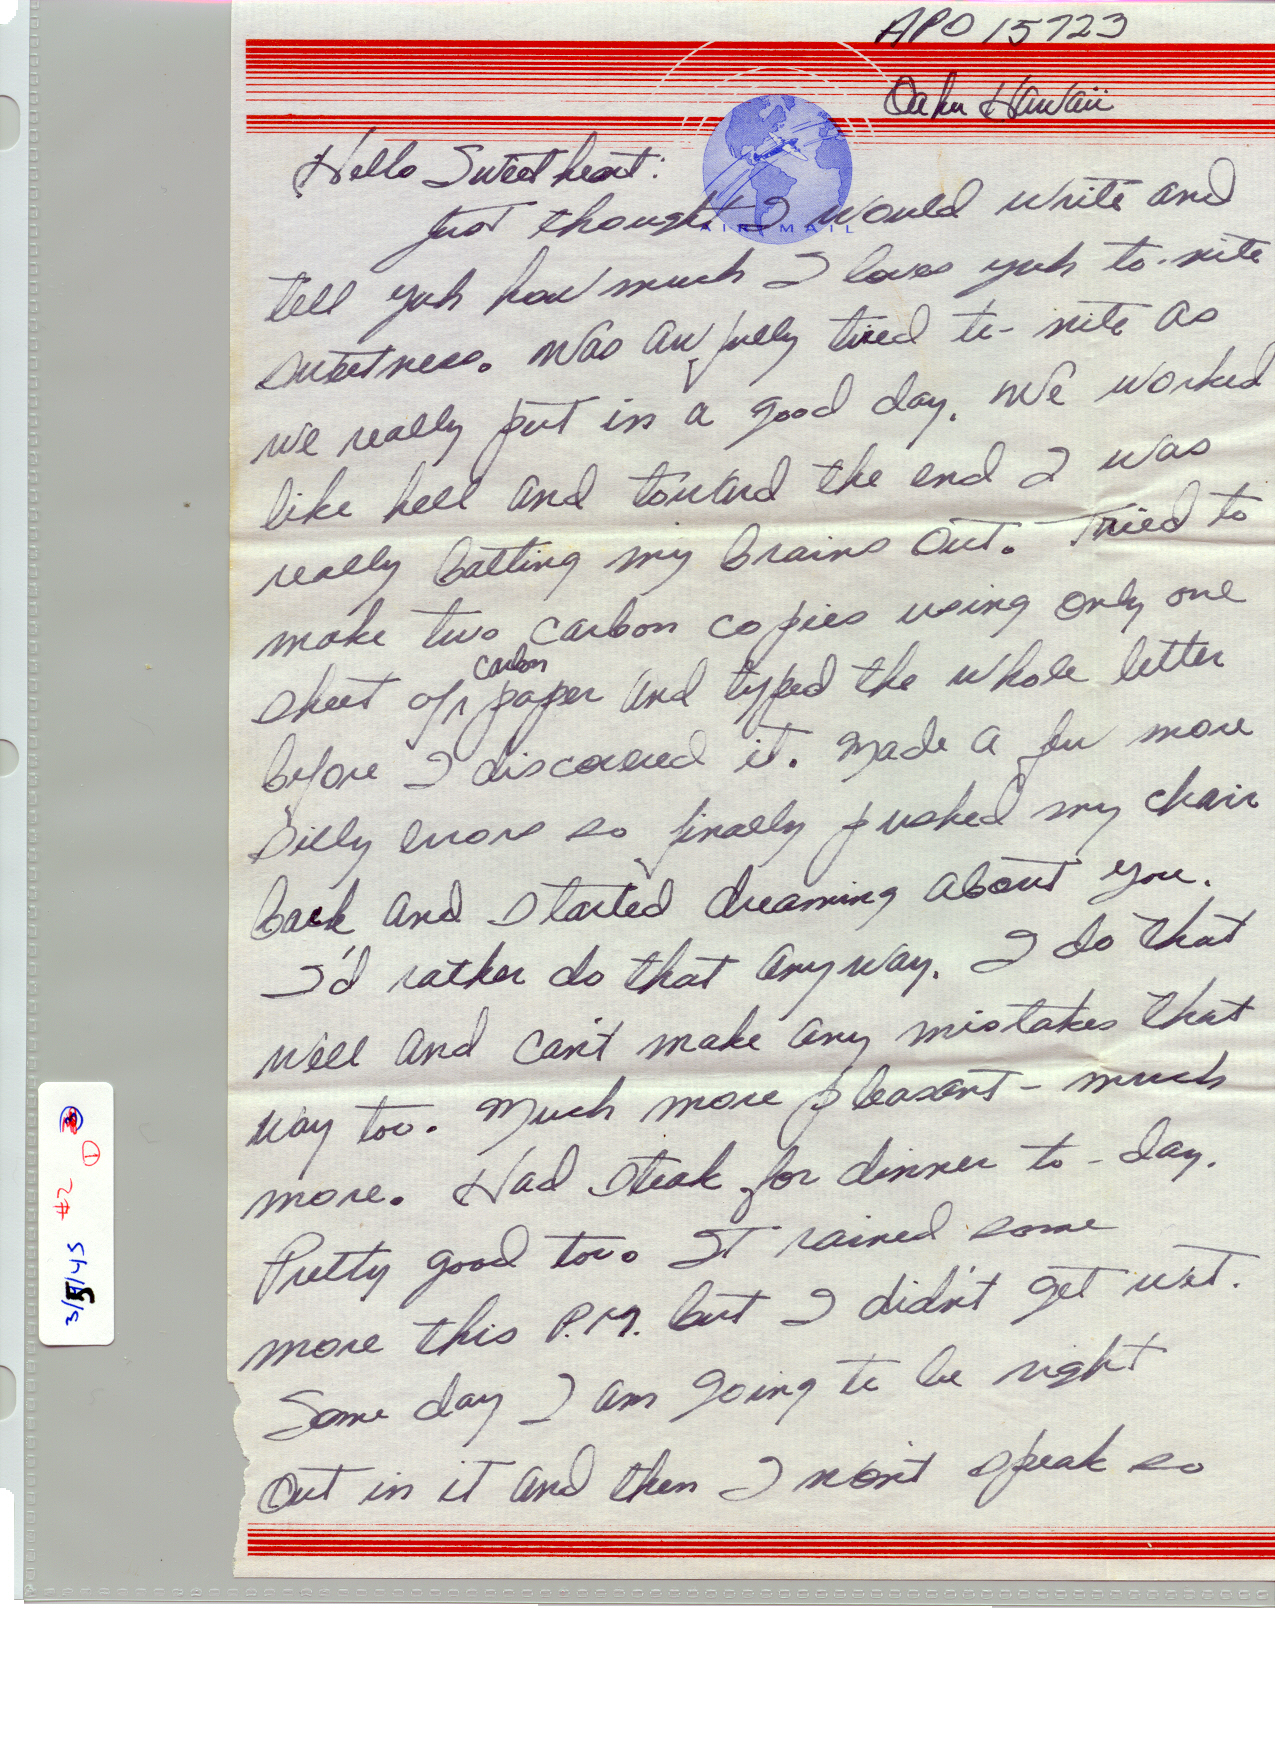 APO 15723
Oahu Hawaii
Hello Sweetheart:
Just thought I would write and
AIR MAIL
tell yuh how much I loves yuh to-nite
sweetness. Was awfully tired to-nite as
we really put in a good day. We worked
like hell and toward the end I was
really batting my brains out. Tried to
make two carbon copies using only one
carbon
sheet of paper and typed the whole letter
before I discovered it. Made a few more
silly errors so finally pushed my chair
back and started dreaming about you.
I'd rather do that anyway. I do that
well and can't make any mistakes that
way too. Much more pleasant - much
more. Had steak for dinner to-day.
Pretty good too. It rained some
more this P.M. but I didn't get wet.
Some day I am going to be right
out in it and then I won't speak so
3/5/45 #2 ①